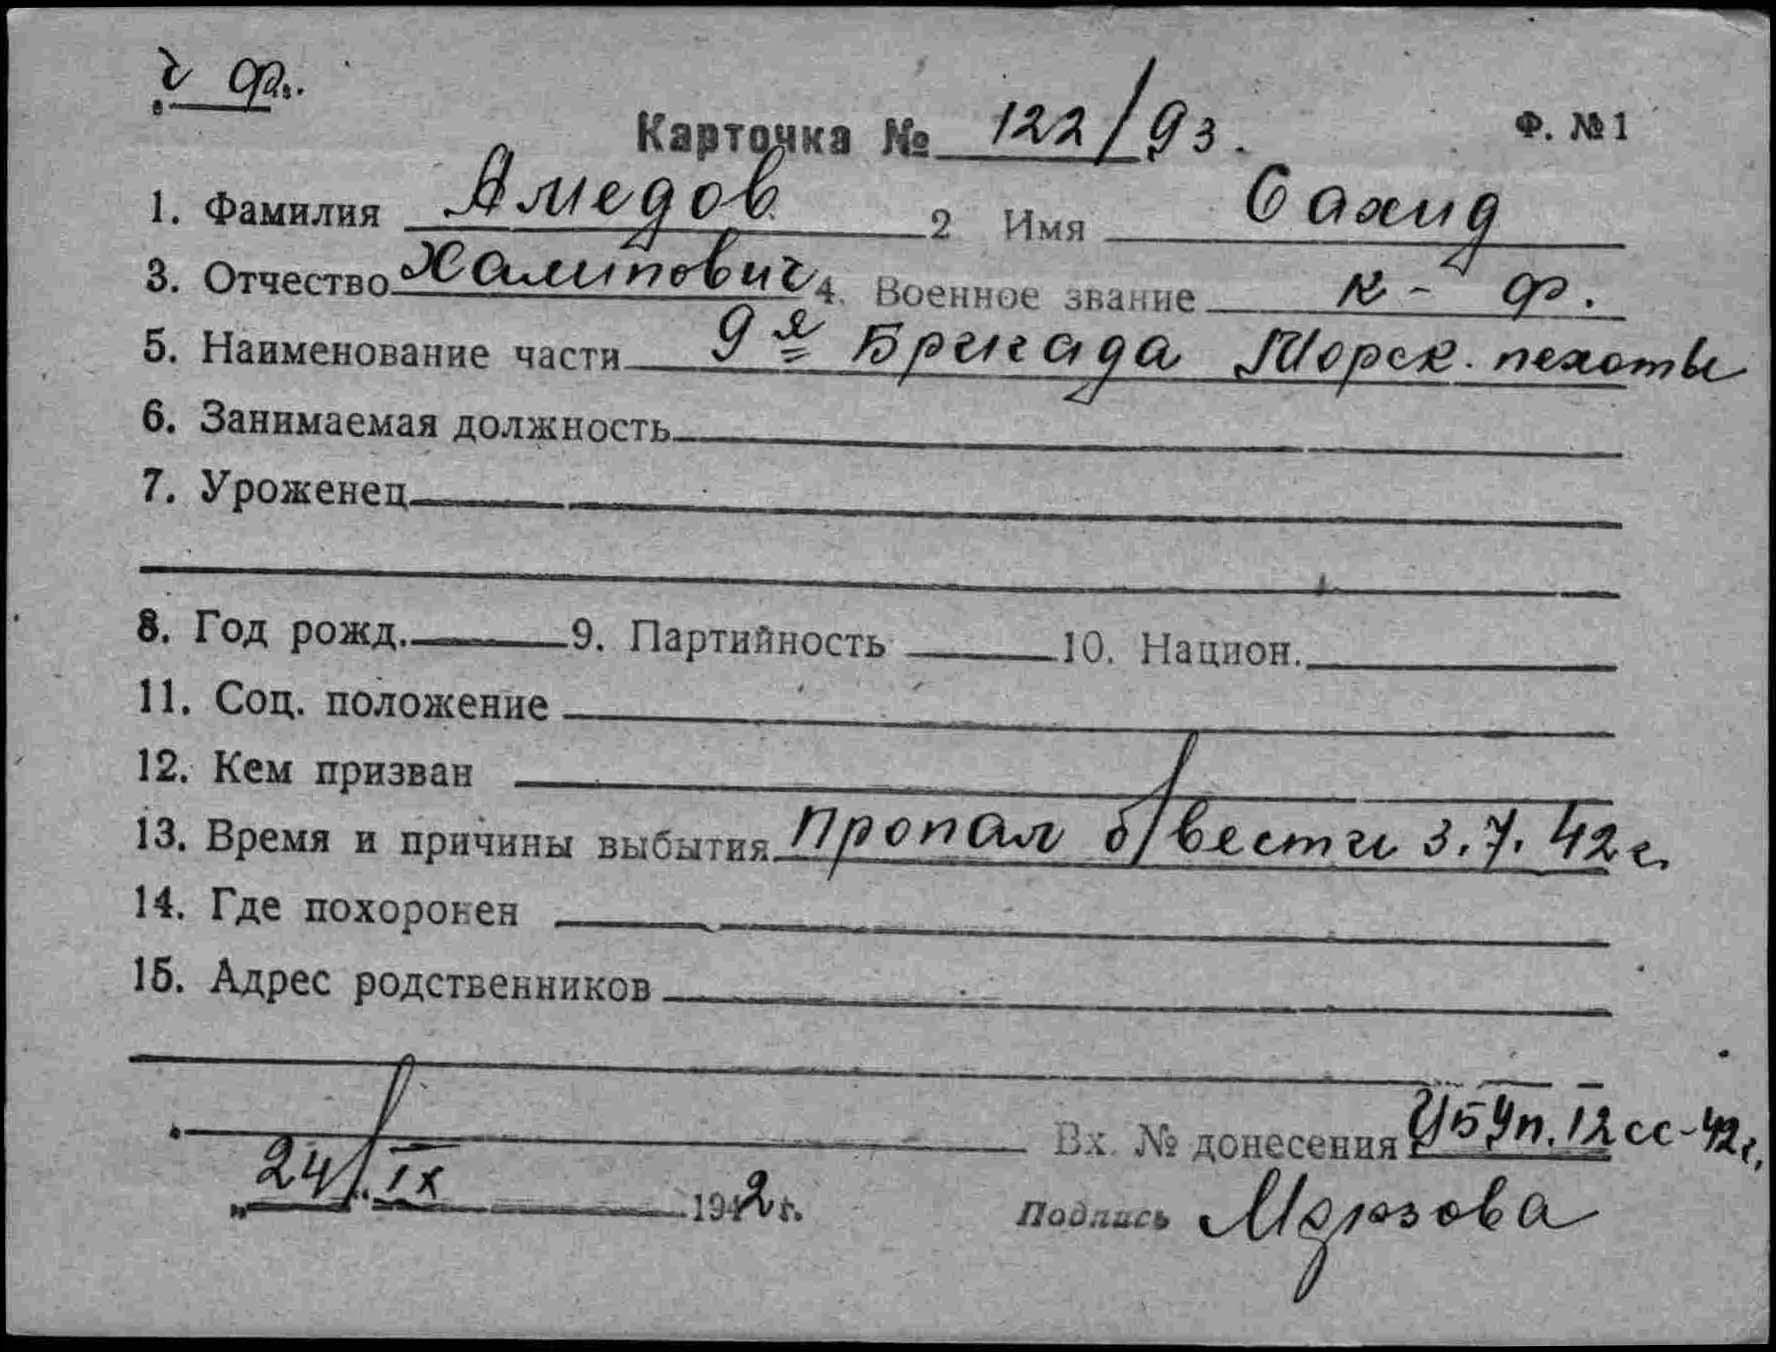 ч ф.
Карточка № 122/93. Ф. №1
1. Фамилия Амедов 2 Имя Сахид
3. Отчество Халипович 4. Военное звание к-ф.
5. Наименование части 9я Бригада Морск. пехоты
6. Занимаемая должность
7. Уроженец
8. Год рожд. 9. Партийность 10. Национ.
11. Соц. положение
12. Кем призван
13. Время и причины выбытия Пропал б/вести 3.7.42 г.
14. Где похоронен
15. Адрес родственников
Вх. № донесения 12сс-42г.
"24/IX 1942 г. Подпись